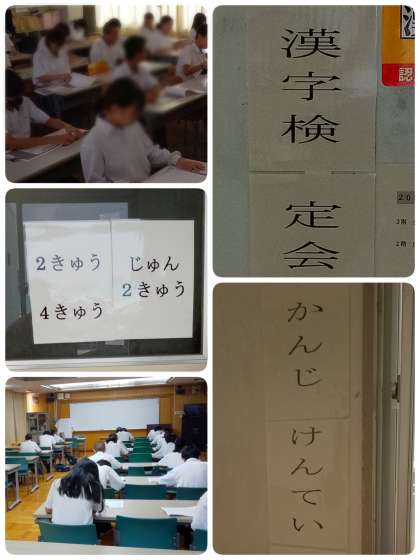 漢字検
定会
2きゅう
4きゅう
じゅん
2きゅう
かんじ
けんてい